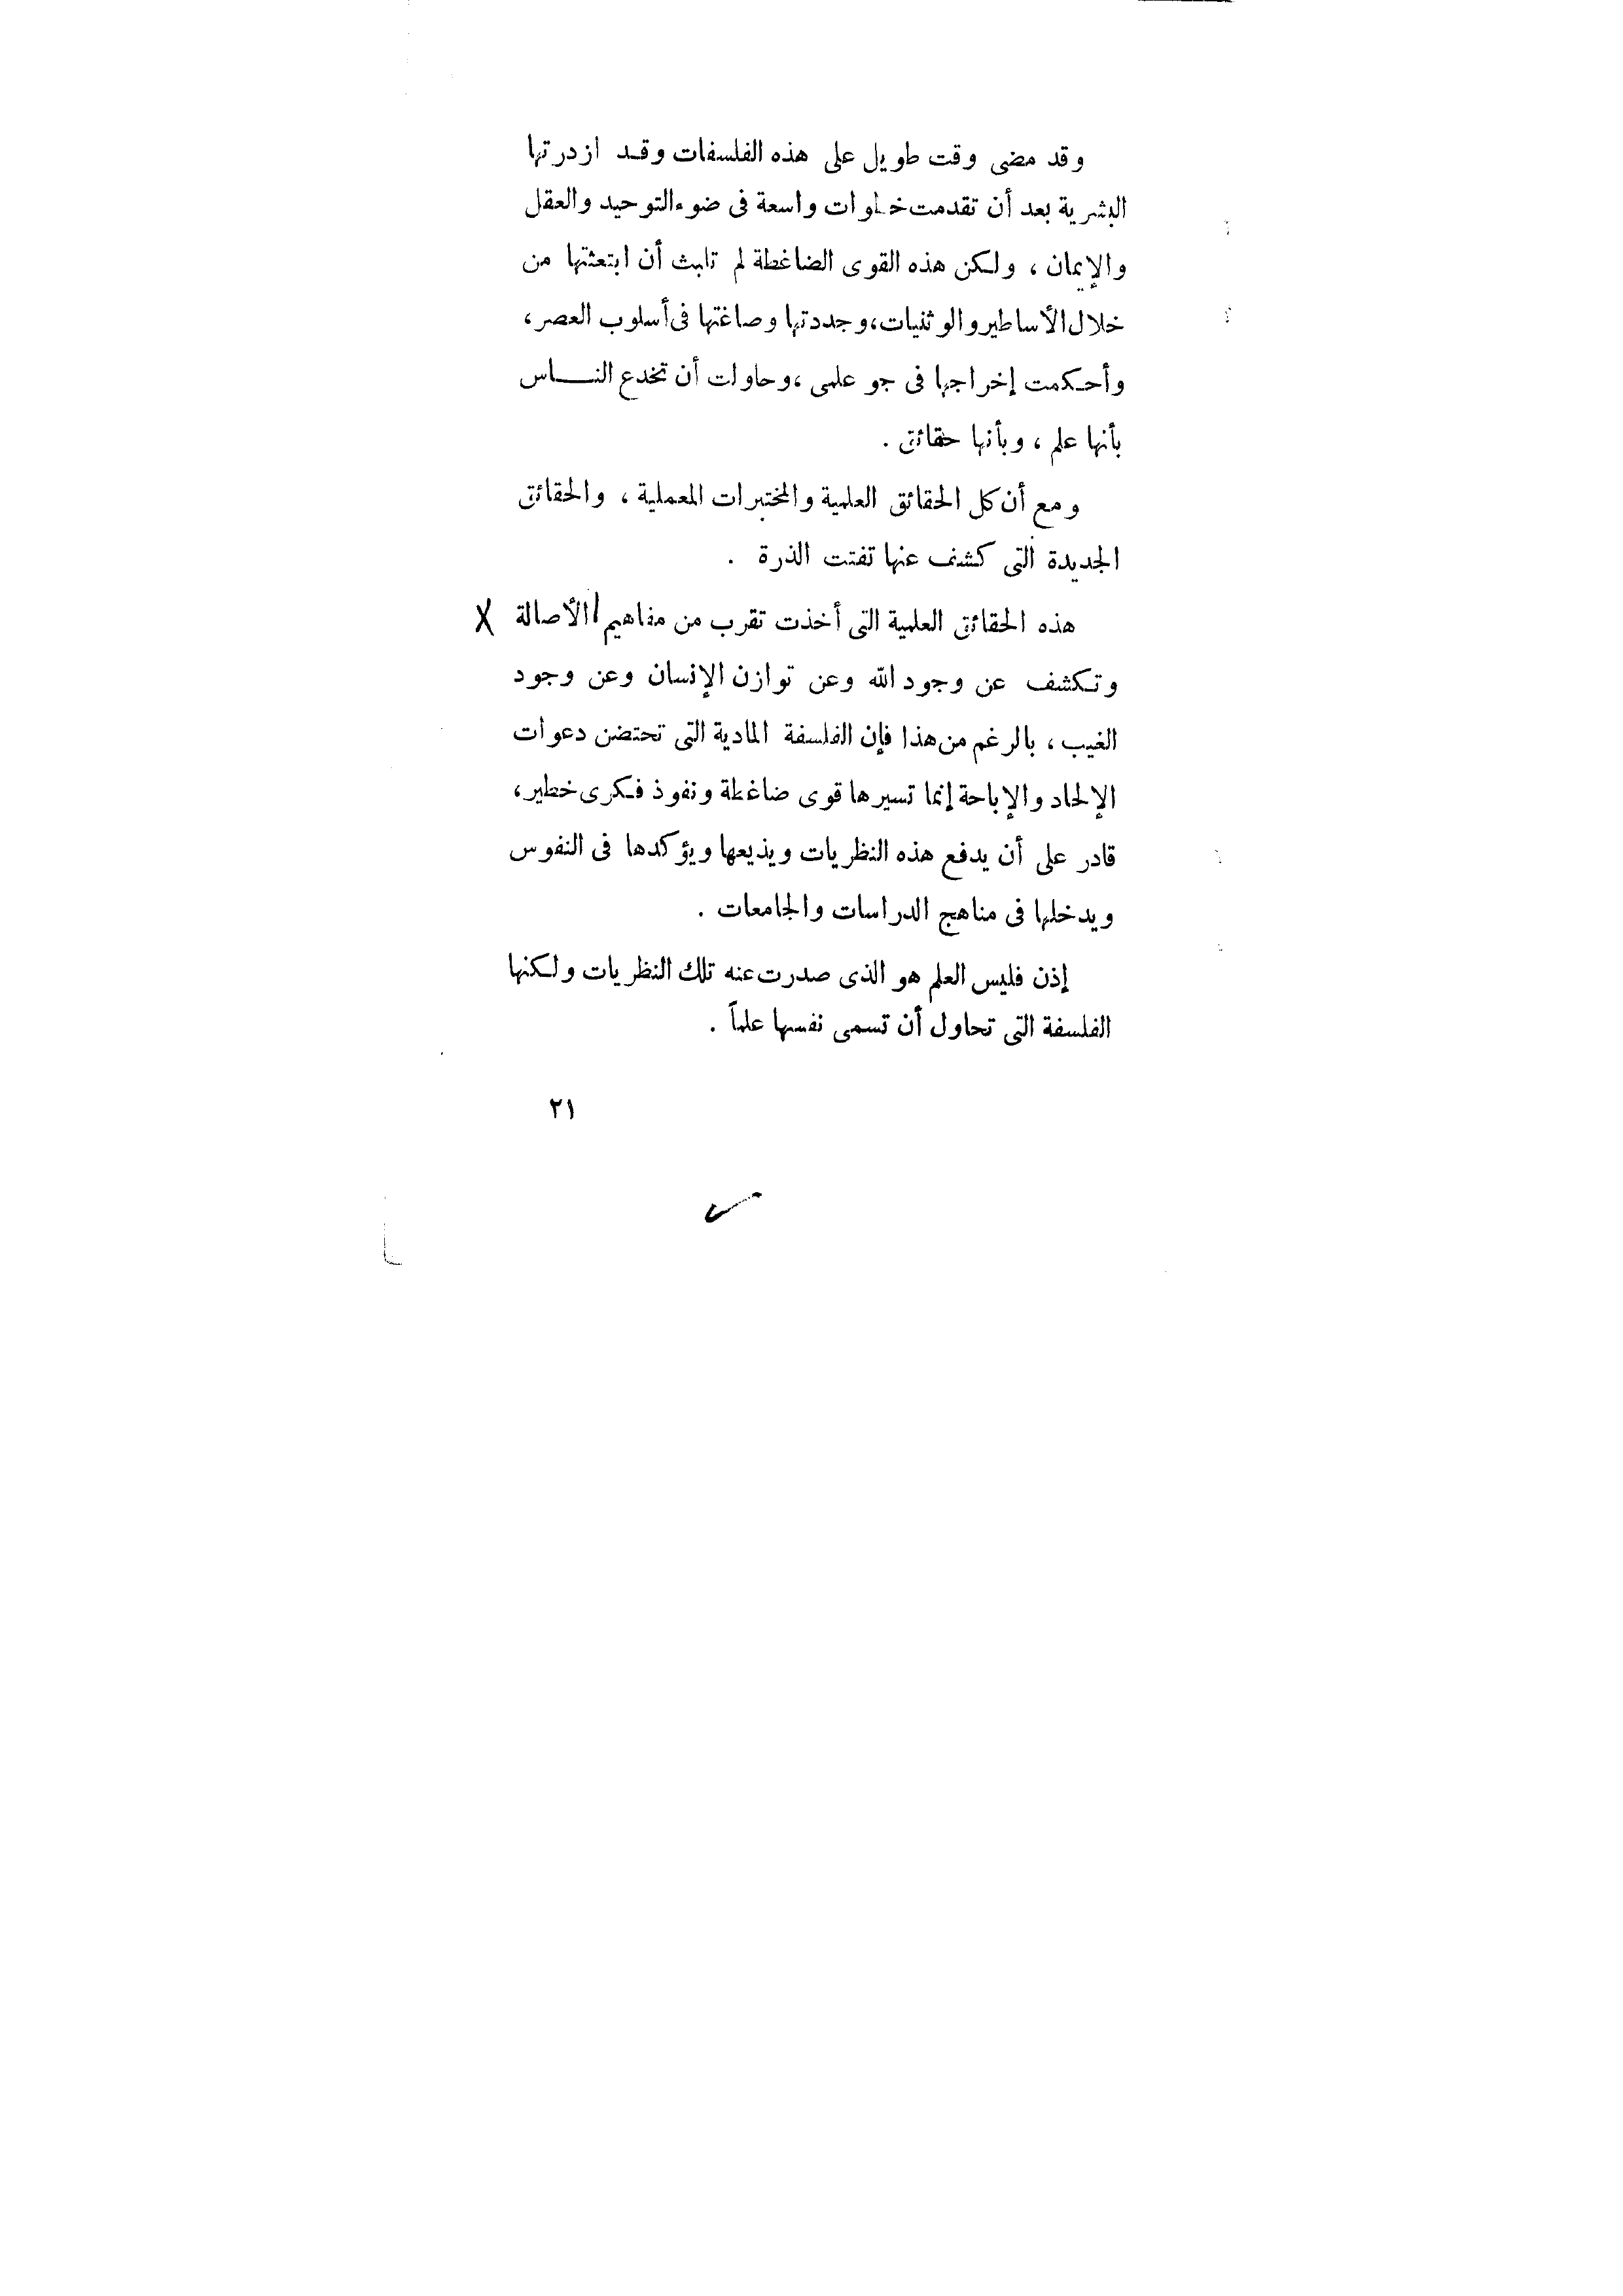 وقد مضى وقت طويل على هذه الفلسفات وقد ازدرتها
البشرية بعد أن تقدمت خطوات واسعة فى ضوء التوحيد والعقل
والإيمان ، ولكن هذه القوى الضاغطة لم تلبث أن ابتعثتها من
خلال الأساطير والوثنيات، وجددتها وصاغتها فى أسلوب العصر،
وأحكمت إخراجها فى جو علمى ، وحاولت أن تخدع النـــاس
بأنها علم ، وبأنها حقائق .
ومع أن كل الحقائق العلمية والمختبرات المعملية ، والحقائق
الجديدة التى كشف عنها تفتت الذرة .
هذه الحقائق العلمية التى أخذت تقرب من مفاهيم / الأصالة X
وتكشف عن وجود الله وعن توازن الإنسان وعن وجود
الغيب ، بالرغم من هذا فإن الفلسفة المادية التى تحتضن دعوات
الإلحاد والإباحة إنما تسيرها قوى ضاغطة ونفوذ فكرى خطير،
قادر على أن يدفع هذه النظريات ويذيعها ويؤكدها فى النفوس
ويدخلها فى مناهج الدراسات والجامعات .
إذن فليس العلم هو الذى صدرت عنه تلك النظريات ولكنها
الفلسفة التى تحاول أن تسمى نفسها علماً .
٢١